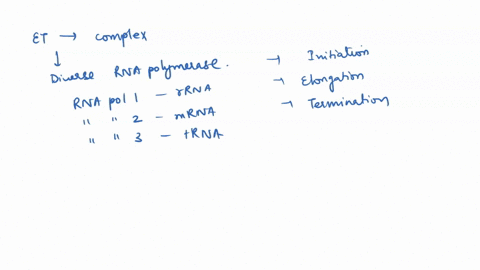 ET → complex
↓
Diverse RNA polymerase.
RNA pol 1 - rRNA
" " 2 - mRNA
" " 3 - tRNA
→ Initiation
→ Elongation
→ Termination